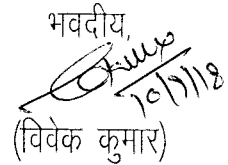 भवदीय,
10/7/18
(विवेक कुमार)